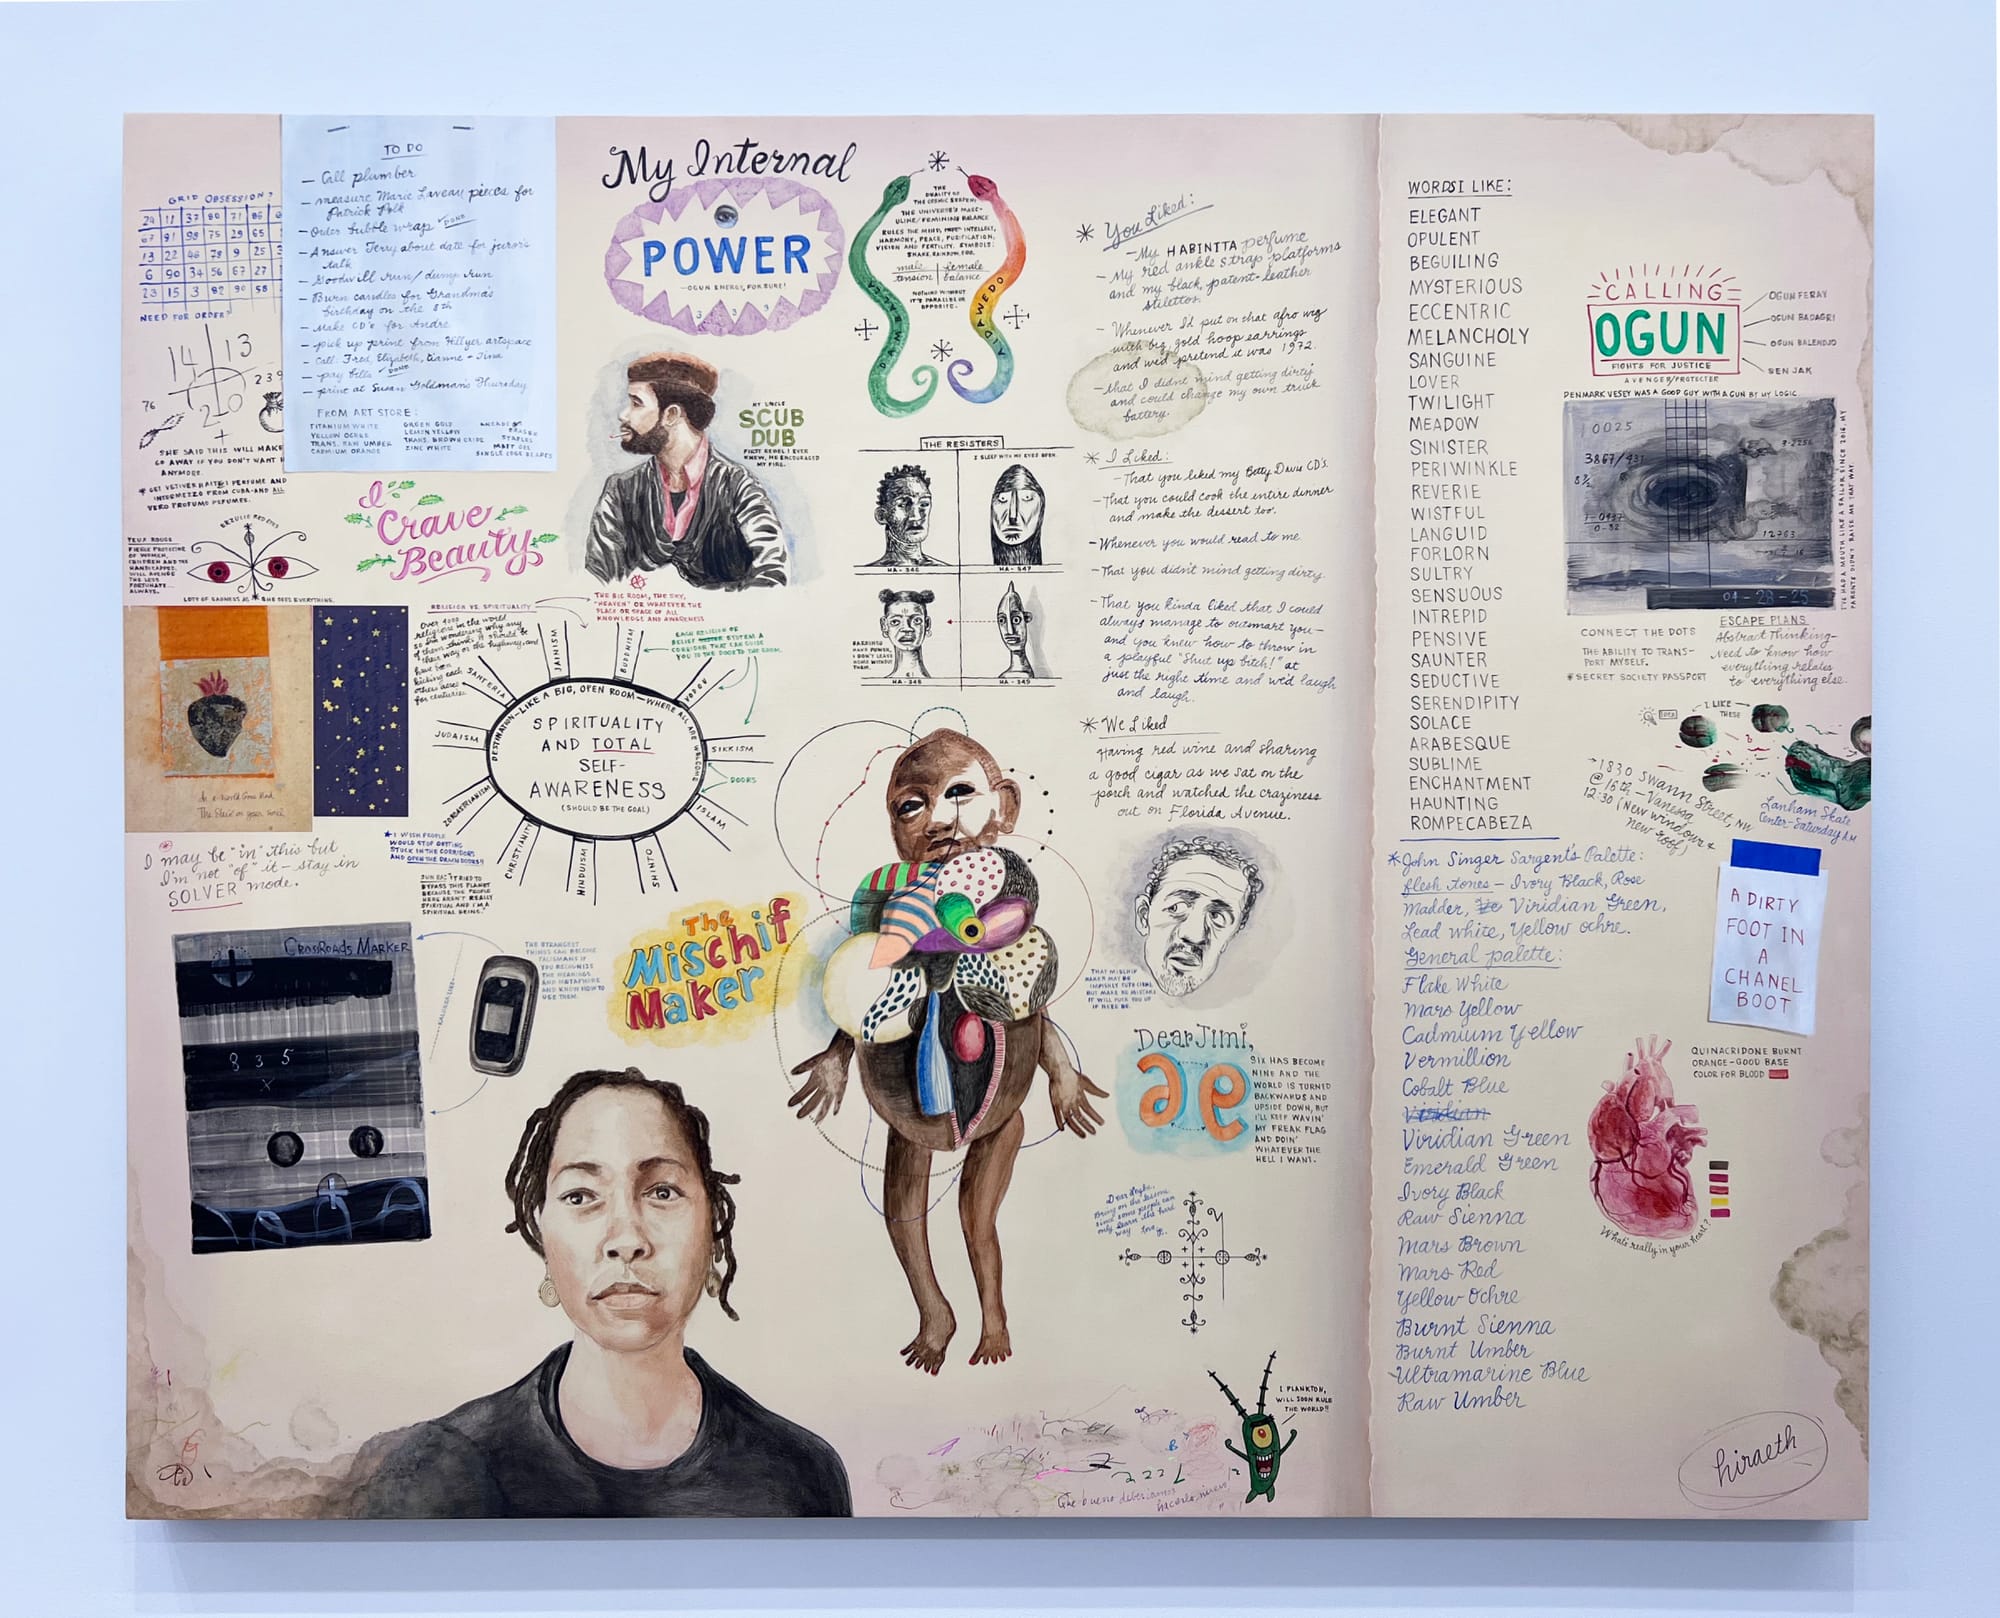 GRID OBSESSION?
24 11 37 80 71 86
67 91 98 75 29 65
13 22 46 78 9 25
6 90 34 56 67 27
23 15 3 82 90 58
NEED FOR ORDER?
14 13
76
20
239
SHE SAID THIS WILL MAKE
GO AWAY IF YOU DON'T WANT
ANYMORE.
* GET VETIVER HAITI PERFUME AND
INTERMEZZO FROM CUBA-AND ALL
VERO PROFUMO PERFUMES.
TO DO
- Call plumber
- measure Marie Laveau pieces for
Patrick Polk
- Order bubble wrap DONE
- Answer Terry about date for juror's
talk
- Goodwill run/dump run
- Burn candles for Grandma's
birthday on the 8th
- Make CD's for Andre
- pick up print from Hillyer artspace
- Call: Fred, Elizabeth, Lianne - Tina
- pay bills DONE
- print at Susan Goldman's Thursday
FROM ART STORE:
TITANIUM WHITE
YELLOW OCHRE
TRANS. RAW UMBER
CADMIUM ORANGE
GREEN GOLD
LEMON YELLOW
TRANS. BROWN OXIDE
ZINC WHITE
KNEADED ERASER
STAPLES
MATT GEL
SINGLE EDGE BLADES
ERZULIE RED EYES
YEUX ROUGE
FIERCE PROTECTOR
OF WOMEN,
CHILDREN AND THE
HANDICAPPED.
WILL AVENGE
THE LESS
FORTUNATE
ALWAYS.
LOTS OF SADNESS AS SHE SEES EVERYTHING.
I
Crave
Beauty
In a World Gone Mad
I may be "in" this but
I'm not "of" it - stay in
SOLVER mode.
CROSSROADS MARKER
835
X
THE STRANGEST
THINGS CAN BECOME
TALISMANS IF
YOU RECOGNIZE
THE MEANINGS
AND METAPHORS
AND KNOW HOW TO
USE THEM.
My Internal
POWER
-OGUN ENERGY, FOR SURE!
MY UNCLE
SCUB
DUB
FIRST REBEL I EVER
KNEW, HE ENCOURAGED
MY FIRE.
RELIGION VS. SPIRITUALITY
THE BIG ROOM, THE SKY,
"HEAVEN" OR WHATEVER THE
PLACE OR SPACE OF ALL
KNOWLEDGE AND AWARENESS
Over 4000
religions in the world
so I'm wondering why any
of them thinks it should be
their way or the highway, and
have been
kicking each
others asses
for centuries.
EACH RELIGION OR
BELIEF SYSTEM A
CORRIDOR THAT CAN GUIDE
YOU TO THE DOOR TO THE ROOM.
JAINISM
BUDDHISM
VODOU
SIKKISM
DOORS
ISLAM
SHINTO
HINDUISM
CHRISTIANITY
ZOROASTRIANISM
JUDAISM
SANTERIA
DESTINATION-LIKE A BIG, OPEN ROOM-WHERE ALL ARE WELCOME
SPIRITUALITY
AND TOTAL
SELF-
AWARENESS
(SHOULD BE THE GOAL)
*I WISH PEOPLE
WOULD STOP GETTING
STUCK IN THE CORRIDORS
AND OPEN THE DAMN DOORS!!
SUN RA: "I TRIED TO
BYPASS THIS PLANET
BECAUSE THE PEOPLE
HERE AREN'T REALLY
SPIRITUAL AND I'M A
SPIRITUAL BEING."
The
Mischif
Maker
THE
DUALITY OF
THE COSMIC SERPENT
THE UNIVERSE'S MASC-
ULINE/FEMININE BALANCE
RULES THE MIND, INTELLECT,
HARMONY, PEACE, PURIFICATION,
VISION AND FERTILITY. SYMBOLS:
SNAKE, RAINBOW, EGG.
male female
tension balance
NOTHING WITHOUT
IT'S PARALLEL OR
OPPOSITE.
DAMBALLA
AIDAWEDO
THE RESISTERS
I SLEEP WITH MY EYES OPEN.
HA-346
HA-347
HA-348
HA-349
HAIRPINS
HAVE POWER,
I DON'T LEAVE
HOME WITHOUT
THEM.
* You Liked:
- My HABINTTA perfume
- My red ankle strap platforms
and my black, patent-leather
stilettos.
- Whenever I'd put on that afro wig
with big, gold hoop earrings
and we'd pretend it was 1972.
- that I didn't mind getting dirty
and could change my own truck
battery.
* I Liked:
- That you liked my Betty Davis CD's.
- That you could cook the entire dinner
and make the dessert too.
- Whenever you would read to me
- That you didn't mind getting dirty.
- That you kinda liked that I could
always manage to outsmart you-
and you knew how to throw in
a playful "Shut up bitch!" at
just the right time and we'd laugh
and laugh.
* We Liked
Having red wine and sharing
a good cigar as we sat on the
porch and watched the craziness
out on Florida Avenue.
THAT MISCHIF
MAKER MAY BE
IMPISHLY CUTE
BUT MAKE NO MISTAKE
IT WILL FUCK YOU UP
IF NEED BE.
Dear Jimi,
SIX HAS BECOME
NINE AND THE
WORLD IS TURNED
BACKWARDS AND
UPSIDE DOWN, BUT
I'LL KEEP WAVIN'
MY FREAK FLAG
AND DOIN'
WHATEVER THE
HELL I WANT.
Dear Legba,
Bring on the lessons
since some people can
only learn the hard
way. Love,
I PLANKTON,
WILL SOON RULE
THE WORLD!!
Que bueno deberíamos
hacerlo, nuevo
WORDS I LIKE:
ELEGANT
OPULENT
BEGUILING
MYSTERIOUS
ECCENTRIC
MELANCHOLY
SANGUINE
LOVER
TWILIGHT
MEADOW
SINISTER
PERIWINKLE
REVERIE
WISTFUL
LANGUID
FORLORN
SULTRY
SENSUOUS
INTREPID
PENSIVE
SAUNTER
SEDUCTIVE
SERENDIPITY
SOLACE
ARABESQUE
SUBLIME
ENCHANTMENT
HAUNTING
ROMPECABEZA
*John Singer Sargent's Palette:
flesh tones - Ivory Black, Rose
Madder, Viridian Green,
Lead white, Yellow ochre.
General palette:
Flake White
Mars Yellow
Cadmium Yellow
Vermillion
Cobalt Blue
Viridian
Viridian Green
Emerald Green
Ivory Black
Raw Sienna
Mars Brown
Mars Red
Yellow Ochre
Burnt Sienna
Burnt Umber
Ultramarine Blue
Raw Umber
CALLING
OGUN
FIGHTS FOR JUSTICE
AVENGER/PROTECTER
OGUN FERAY
OGUN BADAGRI
OGUN BALENDJO
SEN JAK
DENMARK VESEY WAS A GOOD GUY WITH A GUN BY MY LOGIC
10025
3867/431
8 1/2
12703
04-28-25
I'VE HAD A MOUTH LIKE A SAILOR SINCE 2016, MY
PARENTS DIDN'T RAISE ME THAT WAY.
CONNECT THE DOTS
THE ABILITY TO TRANS-
PORT MYSELF.
*SECRET SOCIETY PASSPORT
ESCAPE PLANS
Abstract Thinking-
need to know how
everything relates
to everything else.
IDEA
I LIKE
THESE
1830 Swann Street, NW
@ 16th - Vanessa
12:30 (New windows +
new roof)
Lanham Skate
Center-Saturday AM
A DIRTY
FOOT IN
A
CHANEL
BOOT
QUINACRIDONE BURNT
ORANGE-GOOD BASE
COLOR FOR BLOOD
What's really in your heart?
hiraeth